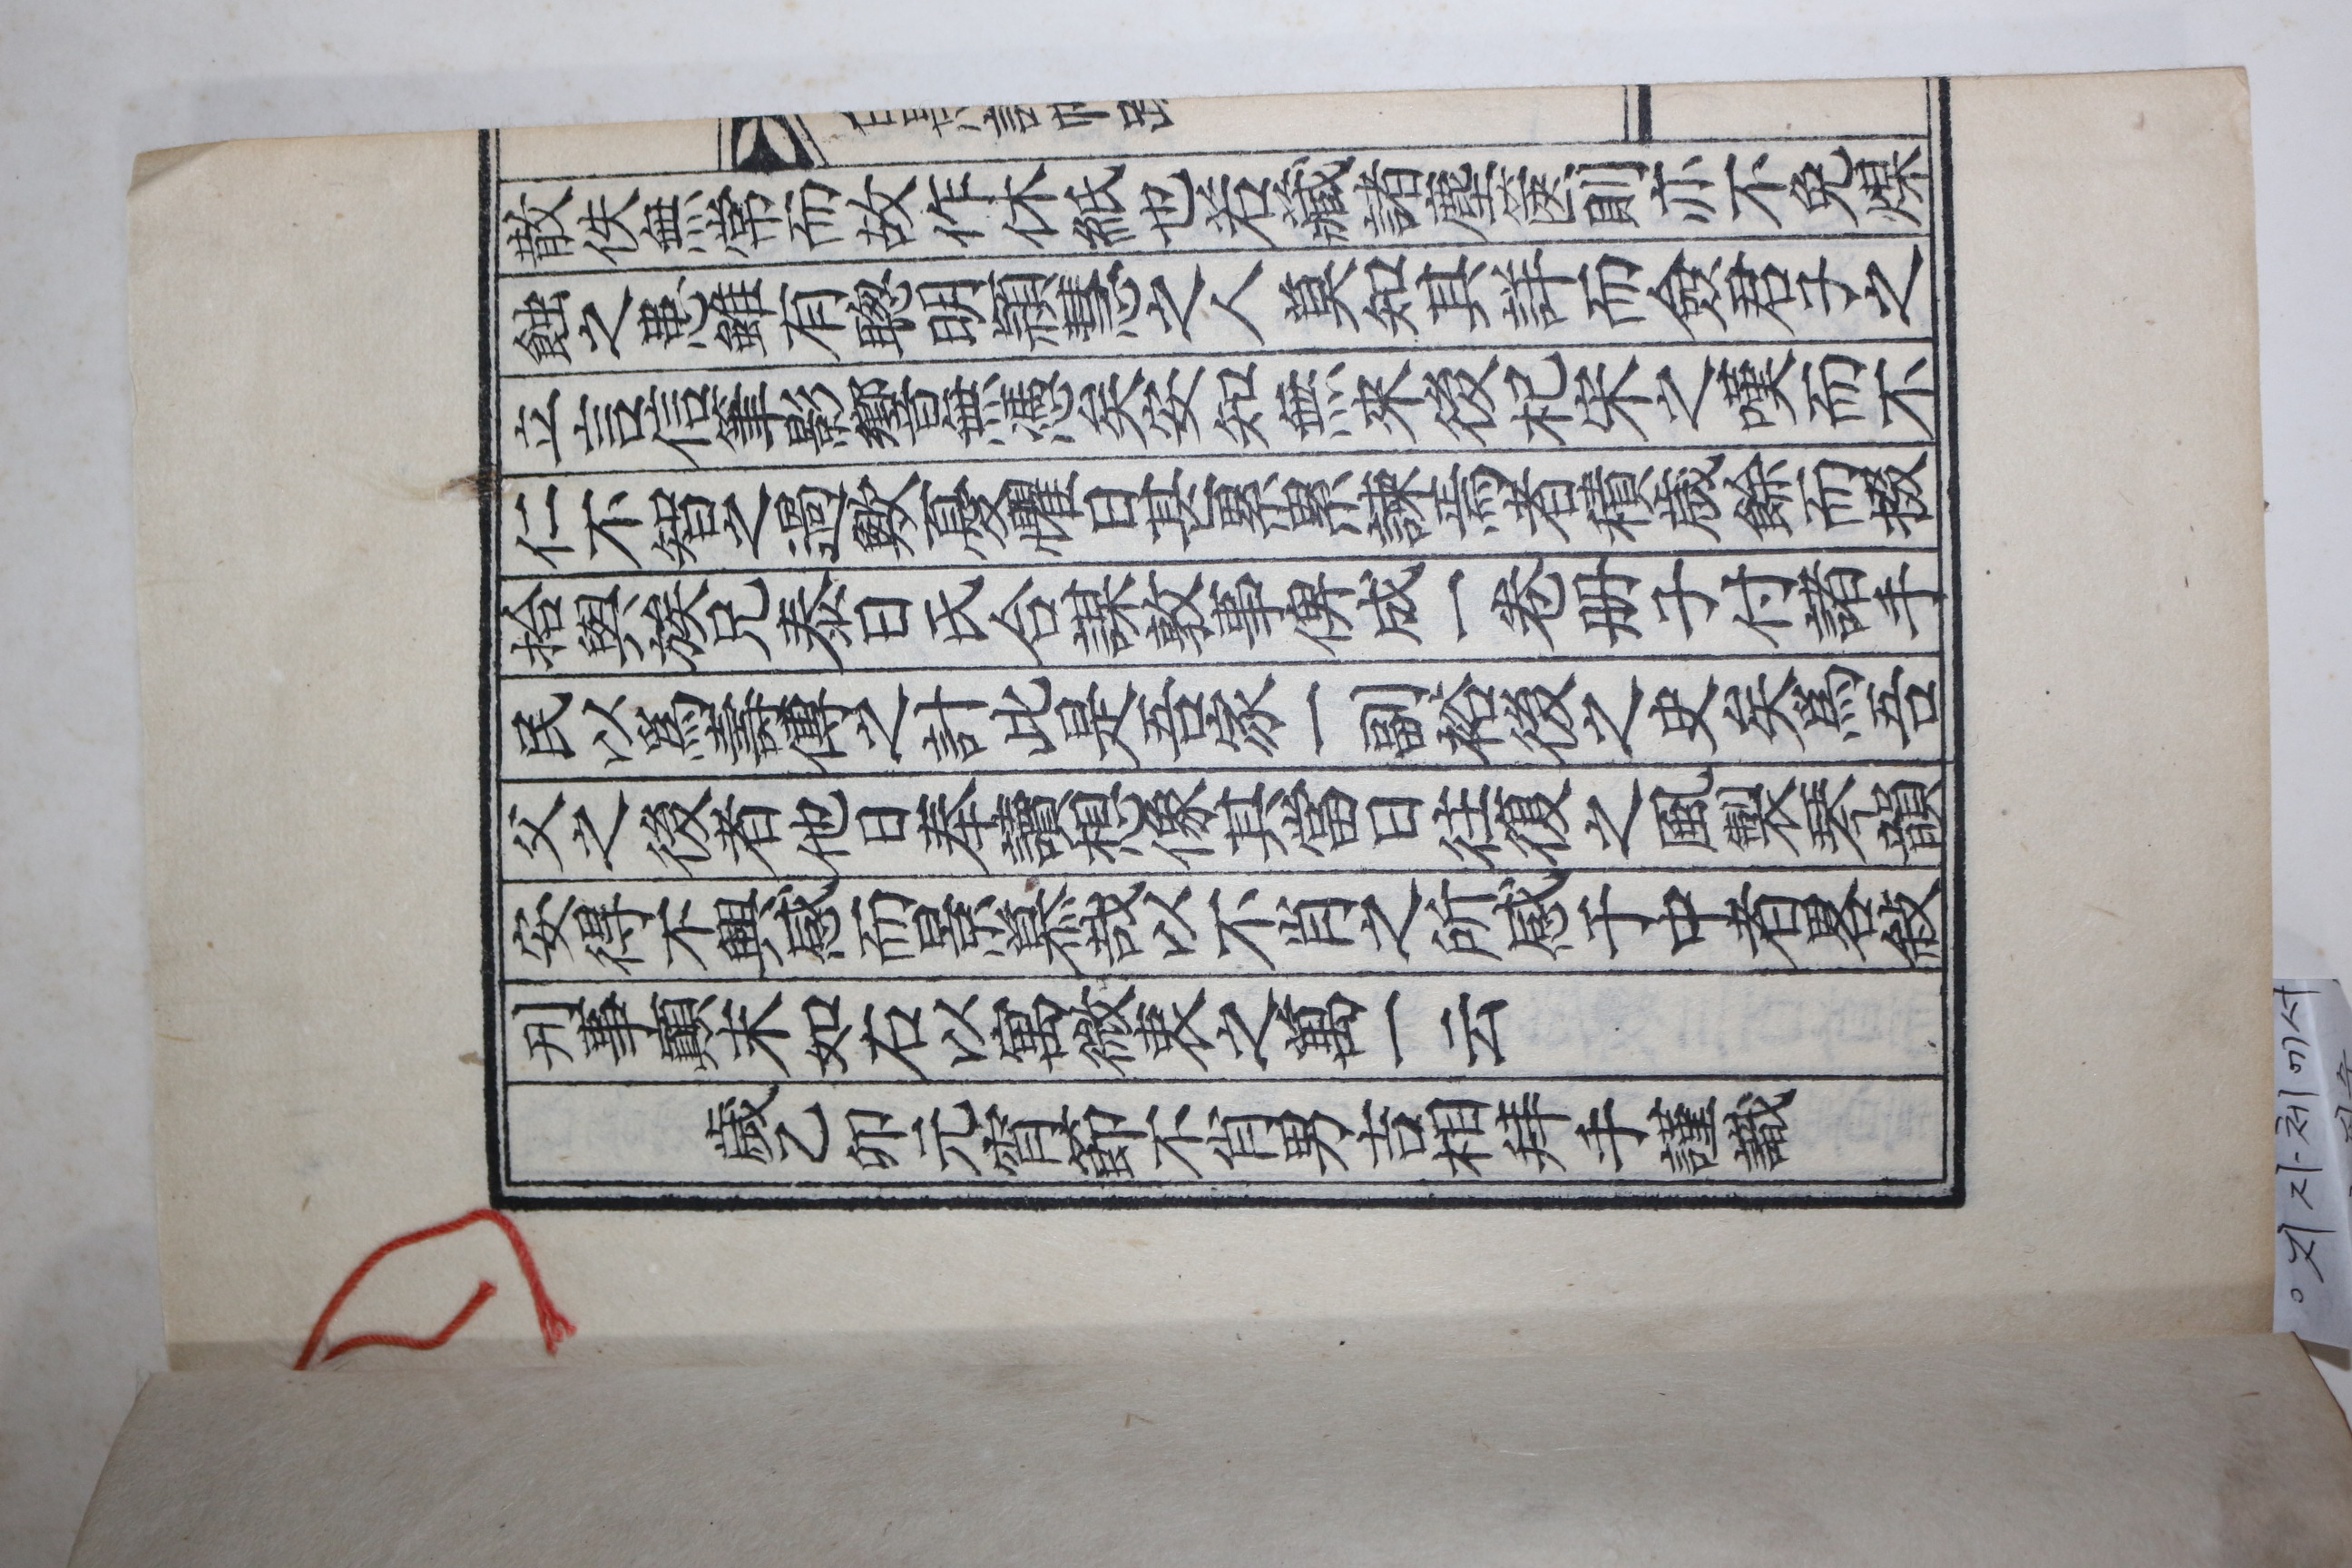 散佚無常而故作休紙也若藏諸塵篋則亦不免煤
蝕之患雖有聰明穎慧之人莫知其詳而僉君子之
立言信筆影響無憑矣安知無來後杞宋之嘆而不
仁不智之過歟憂懼日甚累累諫焉者積歲餘而掇
拾與族兄泰日氏合謀敦事俾成一卷册子付諸手
民以爲壽傳之計此是吾家一副裕後之史矣爲吾
父之後者他日奉讀想像其當日往復之風製琴韻
安得不興感而景慕哉以不肖之所感于中者畧敍
刊事顚末如右以寓微衷之萬一云
歲乙卯元宵節不肖男吉相拜手謹識
자체에서